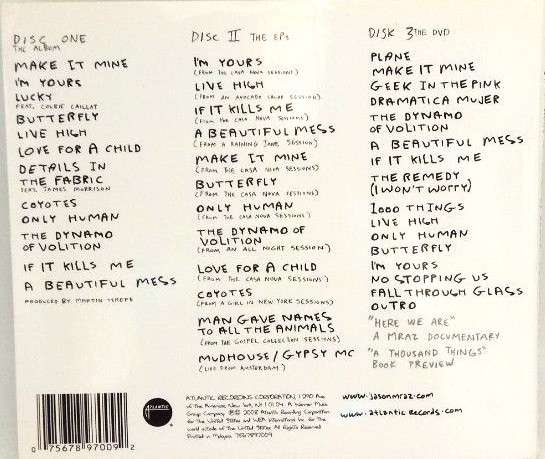 DISC ONE
THE ALBUM
MAKE IT MINE
I'M YOURS
LUCKY
FEAT. COLBIE CAILLAT
BUTTERFLY
LIVE HIGH
LOVE FOR A CHILD
DETAILS IN
THE FABRIC
FEAT. JAMES MORRISON
COYOTES
ONLY HUMAN
THE DYNAMO
OF VOLITION
IF IT KILLS ME
A BEAUTIFUL MESS
PRODUCED BY MARTIN TEREFE
DISC II THE EPs
I'M YOURS
(FROM THE CASA NOVA SESSIONS)
LIVE HIGH
(FROM AN AVOCADO SALAD SESSION)
IF IT KILLS ME
(FROM THE CASA NOVA SESSIONS)
A BEAUTIFUL MESS
(FROM A RAINING JANE SESSION)
MAKE IT MINE
(FROM THE CASA NOVA SESSIONS)
BUTTERFLY
(FROM THE CASA NOVA SESSIONS)
ONLY HUMAN
(FROM THE CASA NOVA SESSIONS)
THE DYNAMO OF
VOLITION
(FROM AN ALL NIGHT SESSION)
LOVE FOR A CHILD
(FROM THE CASA NOVA SESSIONS)
COYOTES
(FROM A GIRL IN NEW YORK SESSIONS)
MAN GAVE NAMES
TO ALL THE ANIMALS
(FROM THE GOSPEL COLLECTION SESSIONS)
MUDHOUSE/GYPSY MC
(LIVE FROM AMSTERDAM)
DISK 3 THE DVD
PLANE
MAKE IT MINE
GEEK IN THE PINK
DRAMATICA MUJER
THE DYNAMO
OF VOLITION
A BEAUTIFUL MESS
IF IT KILLS ME
THE REMEDY
(I WON'T WORRY)
1000 THINGS
LIVE HIGH
ONLY HUMAN
BUTTERFLY
I'M YOURS
NO STOPPING US
FALL THROUGH GLASS
OUTRO
"HERE WE ARE"
A MRAZ DOCUMENTARY
"A THOUSAND THINGS"
BOOK PREVIEW
0 75678 97009 2
ATLANTIC
ATLANTIC RECORDING CORPORATION, 1290 Ave
of the Americas, New York, NY 10104. A Warner Music
Group Company. ℗© 2008 Atlantic Recording Corporation
for the United States and WEA International Inc. for the
world outside of the United States. All Rights Reserved.
Printed in Malaysia. 7567897009
www.jasonmraz.com
www.atlanticrecords.com